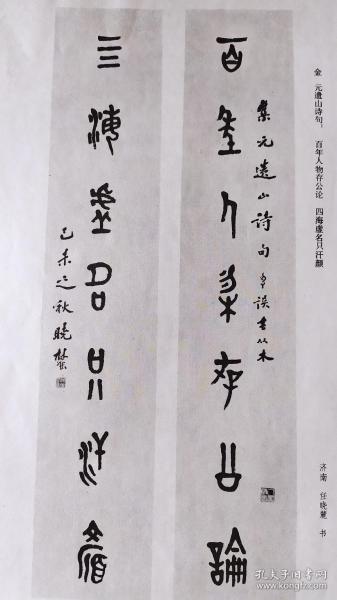 金 元遗山诗句, 百年人物存公论 四海虚名只汗颜
百年人物存公論
集元遗山诗句
三海虛名只汗顏
己未之秋晓麓
济南 任晓麓 书
孔夫子旧书网